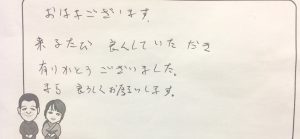 おはようございます。
来るたび 良くしていただき
有りがとうございました。
又も 良ろしくお願いします。